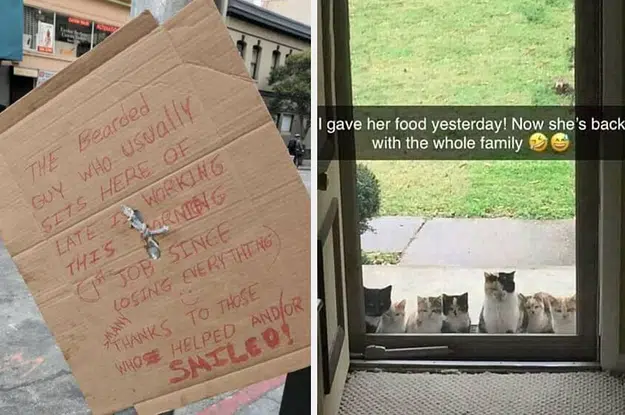 THE Bearded
GUY WHO USUALLY
SITS HERE OF
LATE IS WORKING
THIS MORNING
(1st JOB SINCE
LOSING EVERYTHING)
MANY
THANKS TO THOSE
WHO HELPED AND/OR
SMILED!
I gave her food yesterday! Now she's back
with the whole family 🤣😅